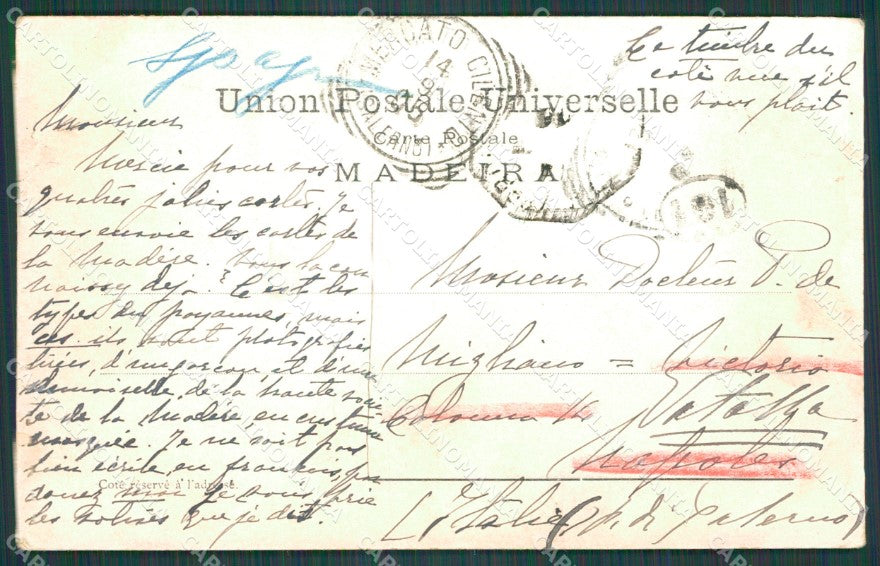 Le timbre du
coté vue s'il
vous plait.
Union Postale Universelle
Carte Postale
MADEIRA
MERCATO CILE
14
9
Monsieur
Mercie pour vos
quatres jolies cartes. Je
vous envoie les cartes de
la Madère. Vous la con
naissez dejà? C'est les
types du paysannes, mais
ces. ils sont photografies
tirées, d'un garçon, et d'une
demoiselle, de la haute soci-
té de la Madère, en costume
masquée. Je ne sait pas
bien écrite, en français, par
donez moi je vous prie
les sotises que je dit.
Coté réservé à l'adresse.
Monsieur Docteur P. de
Migliano = Victorio
Colonna
Napoles
L'Italie (
CARTOLINOMANIA